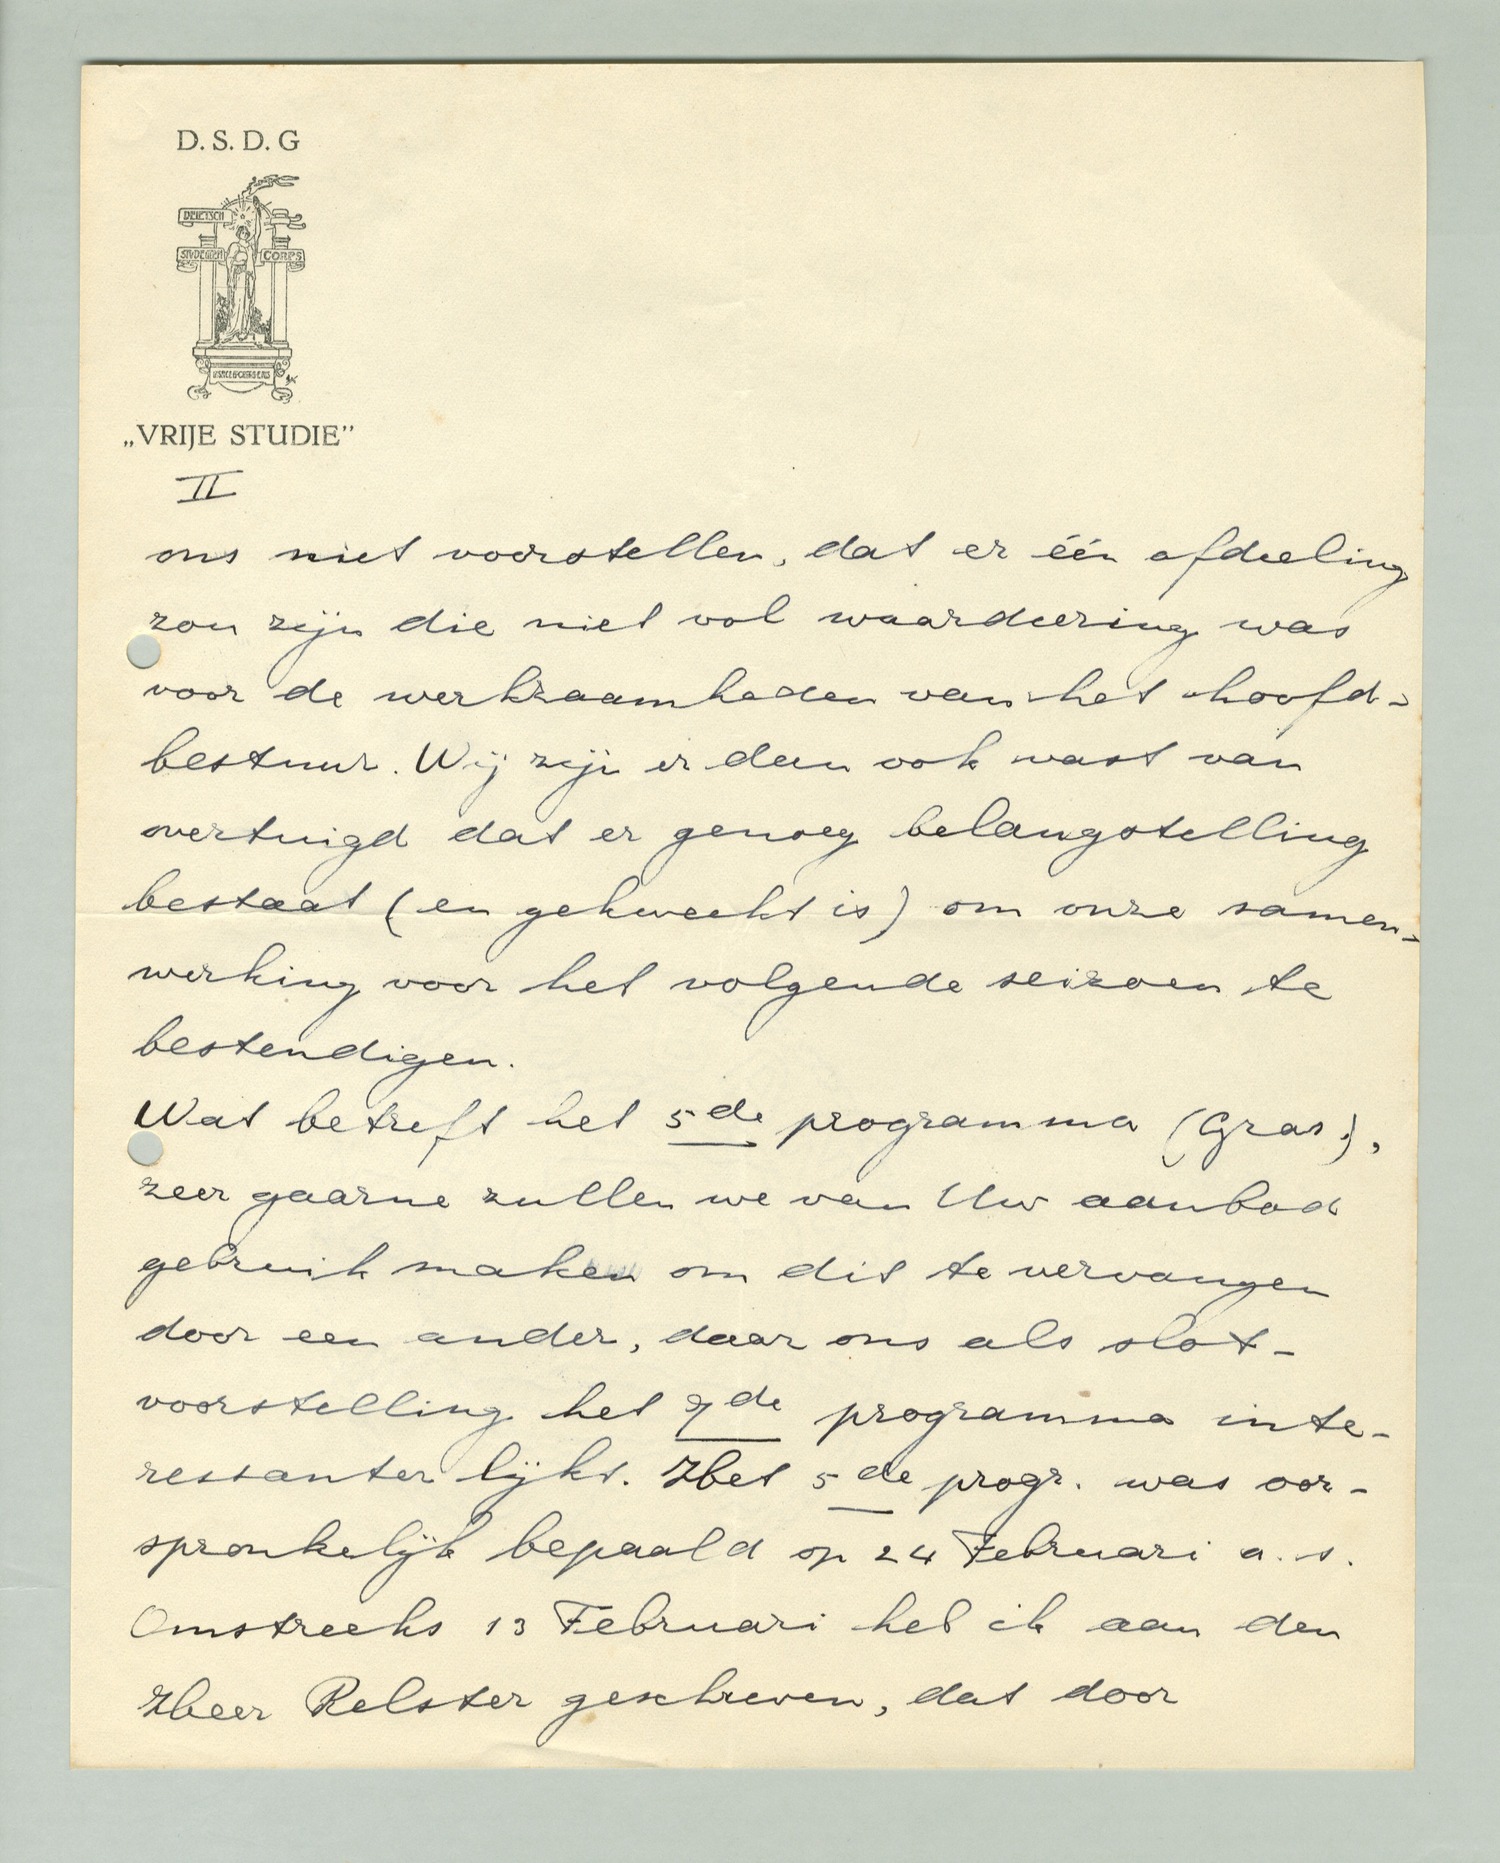 D. S. D. G
DELFTSCH
STUDENTEN CORPS
„VRIJE STUDIE”
II
ons niet voorstellen, dat er één afdeeling
zou zijn die niet vol waardeering was
voor de werkzaamheden van het hoofd-
bestuur. Wij zijn er dan ook vast van
overtuigd dat er genoeg belangstelling
bestaat (en gekweekt is) om onze samen-
werking voor het volgende seizoen te
bestendigen.
Wat betreft het 5de programma (Gras.),
zeer gaarne zullen we van Uw aanbod
gebruik maken om dit te vervangen
door een ander, daar ons als slot-
voorstelling het 7de programma inte-
ressanter lijkt. Het 5de progr. was oor-
spronkelijk bepaald op 24 Februari a. s.
Omstreeks 13 Februari heb ik aan den
Heer Pelster geschreven, dat door